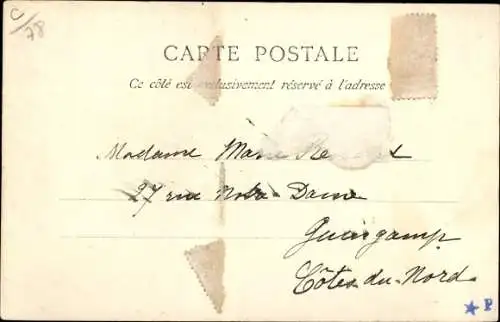 C/78
CARTE POSTALE
Ce côté est exclusivement réservé à l'adresse
Madame Marie
27 rue Notre-Dame
Guingamp
Côtes-du-Nord
P